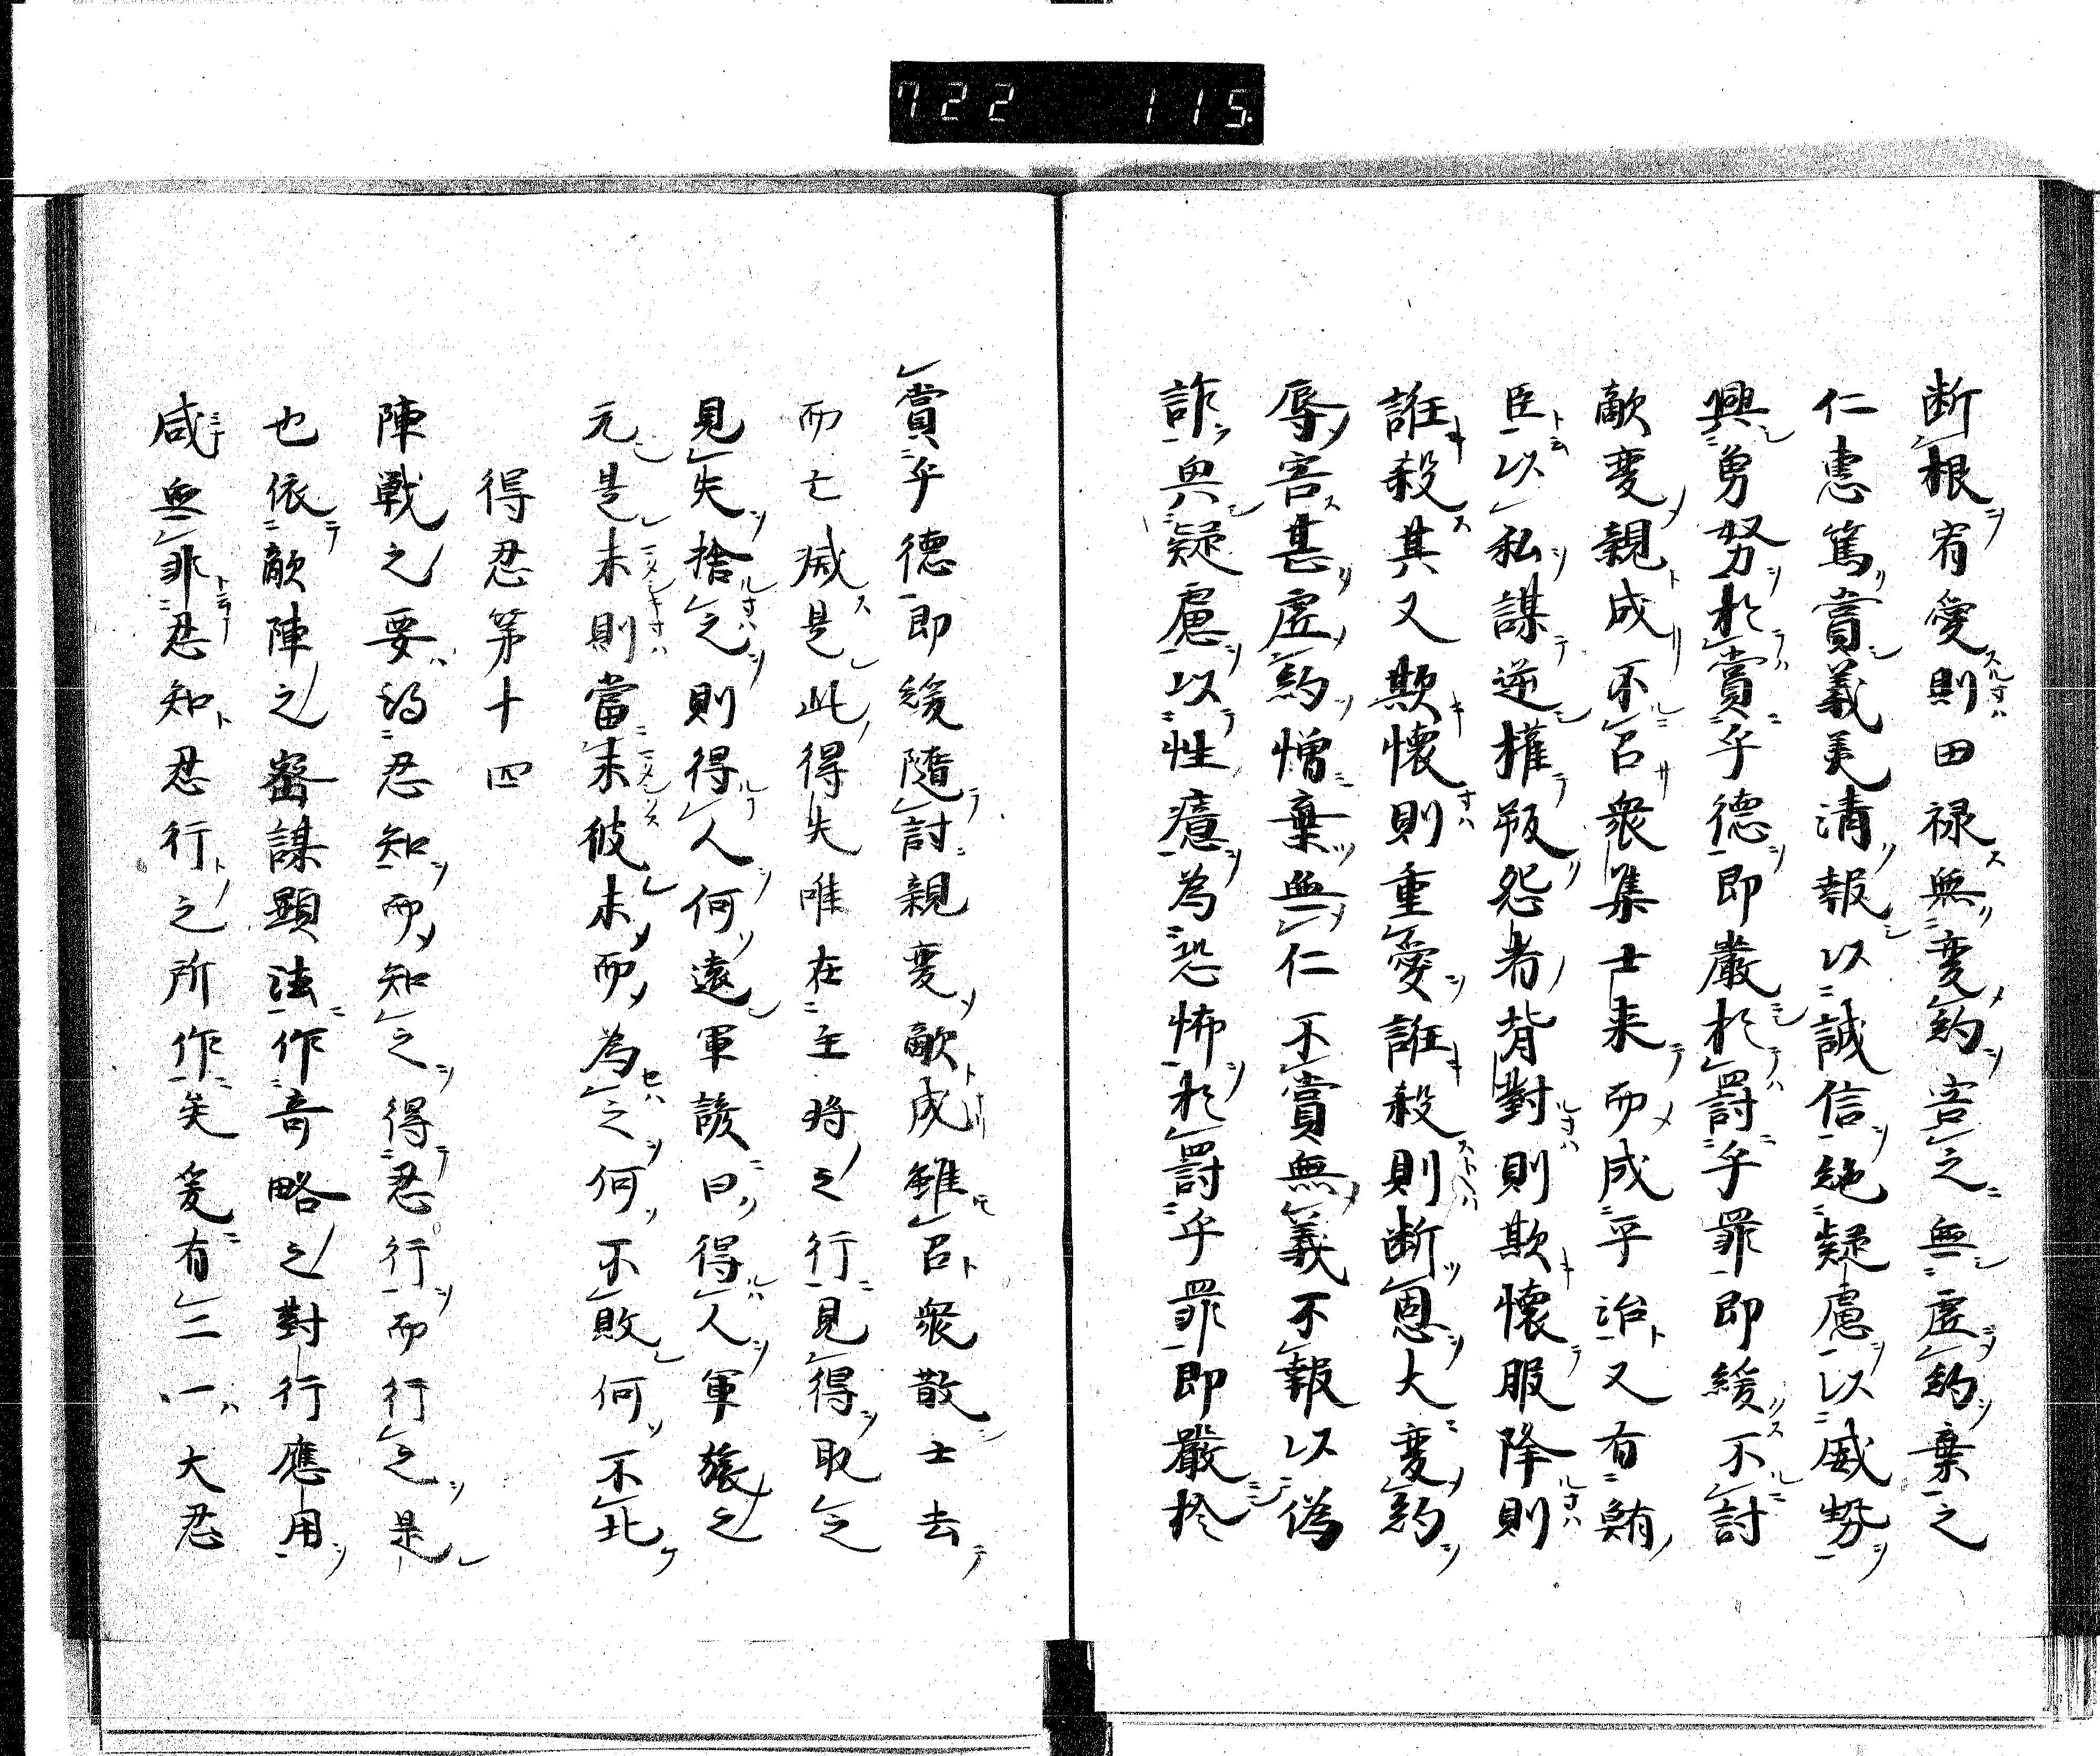 722 115
断根宥愛則田禄無変約害之無虚約棄之
仁恵篤賞義美清報以誠信絶疑慮以威勢
興勇努於賞乎徳即嚴於罸乎罪即緩不討
敵変親成不召衆集士来而成乎治又有
臣以私謀逆權叛怨者背對則欺懐服降則
誑殺其又欺懐則重愛誑殺則断恩大変約
辱害甚虚約憎棄無仁不賞無義不報以偽
詐興疑慮以性為恐怖於罸乎罪即嚴於
賞乎徳即緩隨討親変敵成雖召衆散士去
而亡滅是此得失唯在主将之行見得取之
見失捨之則得人何遠軍談曰得人軍旅之
元是未則當未彼未而為之何不敗何不北
得忍第十四
陣戦之要為忍知而知之得忍行而行之是
也依敵陣之密謀顕法作奇略之對行應用
咸無非忍知忍行之所作矣爰有二一大忍